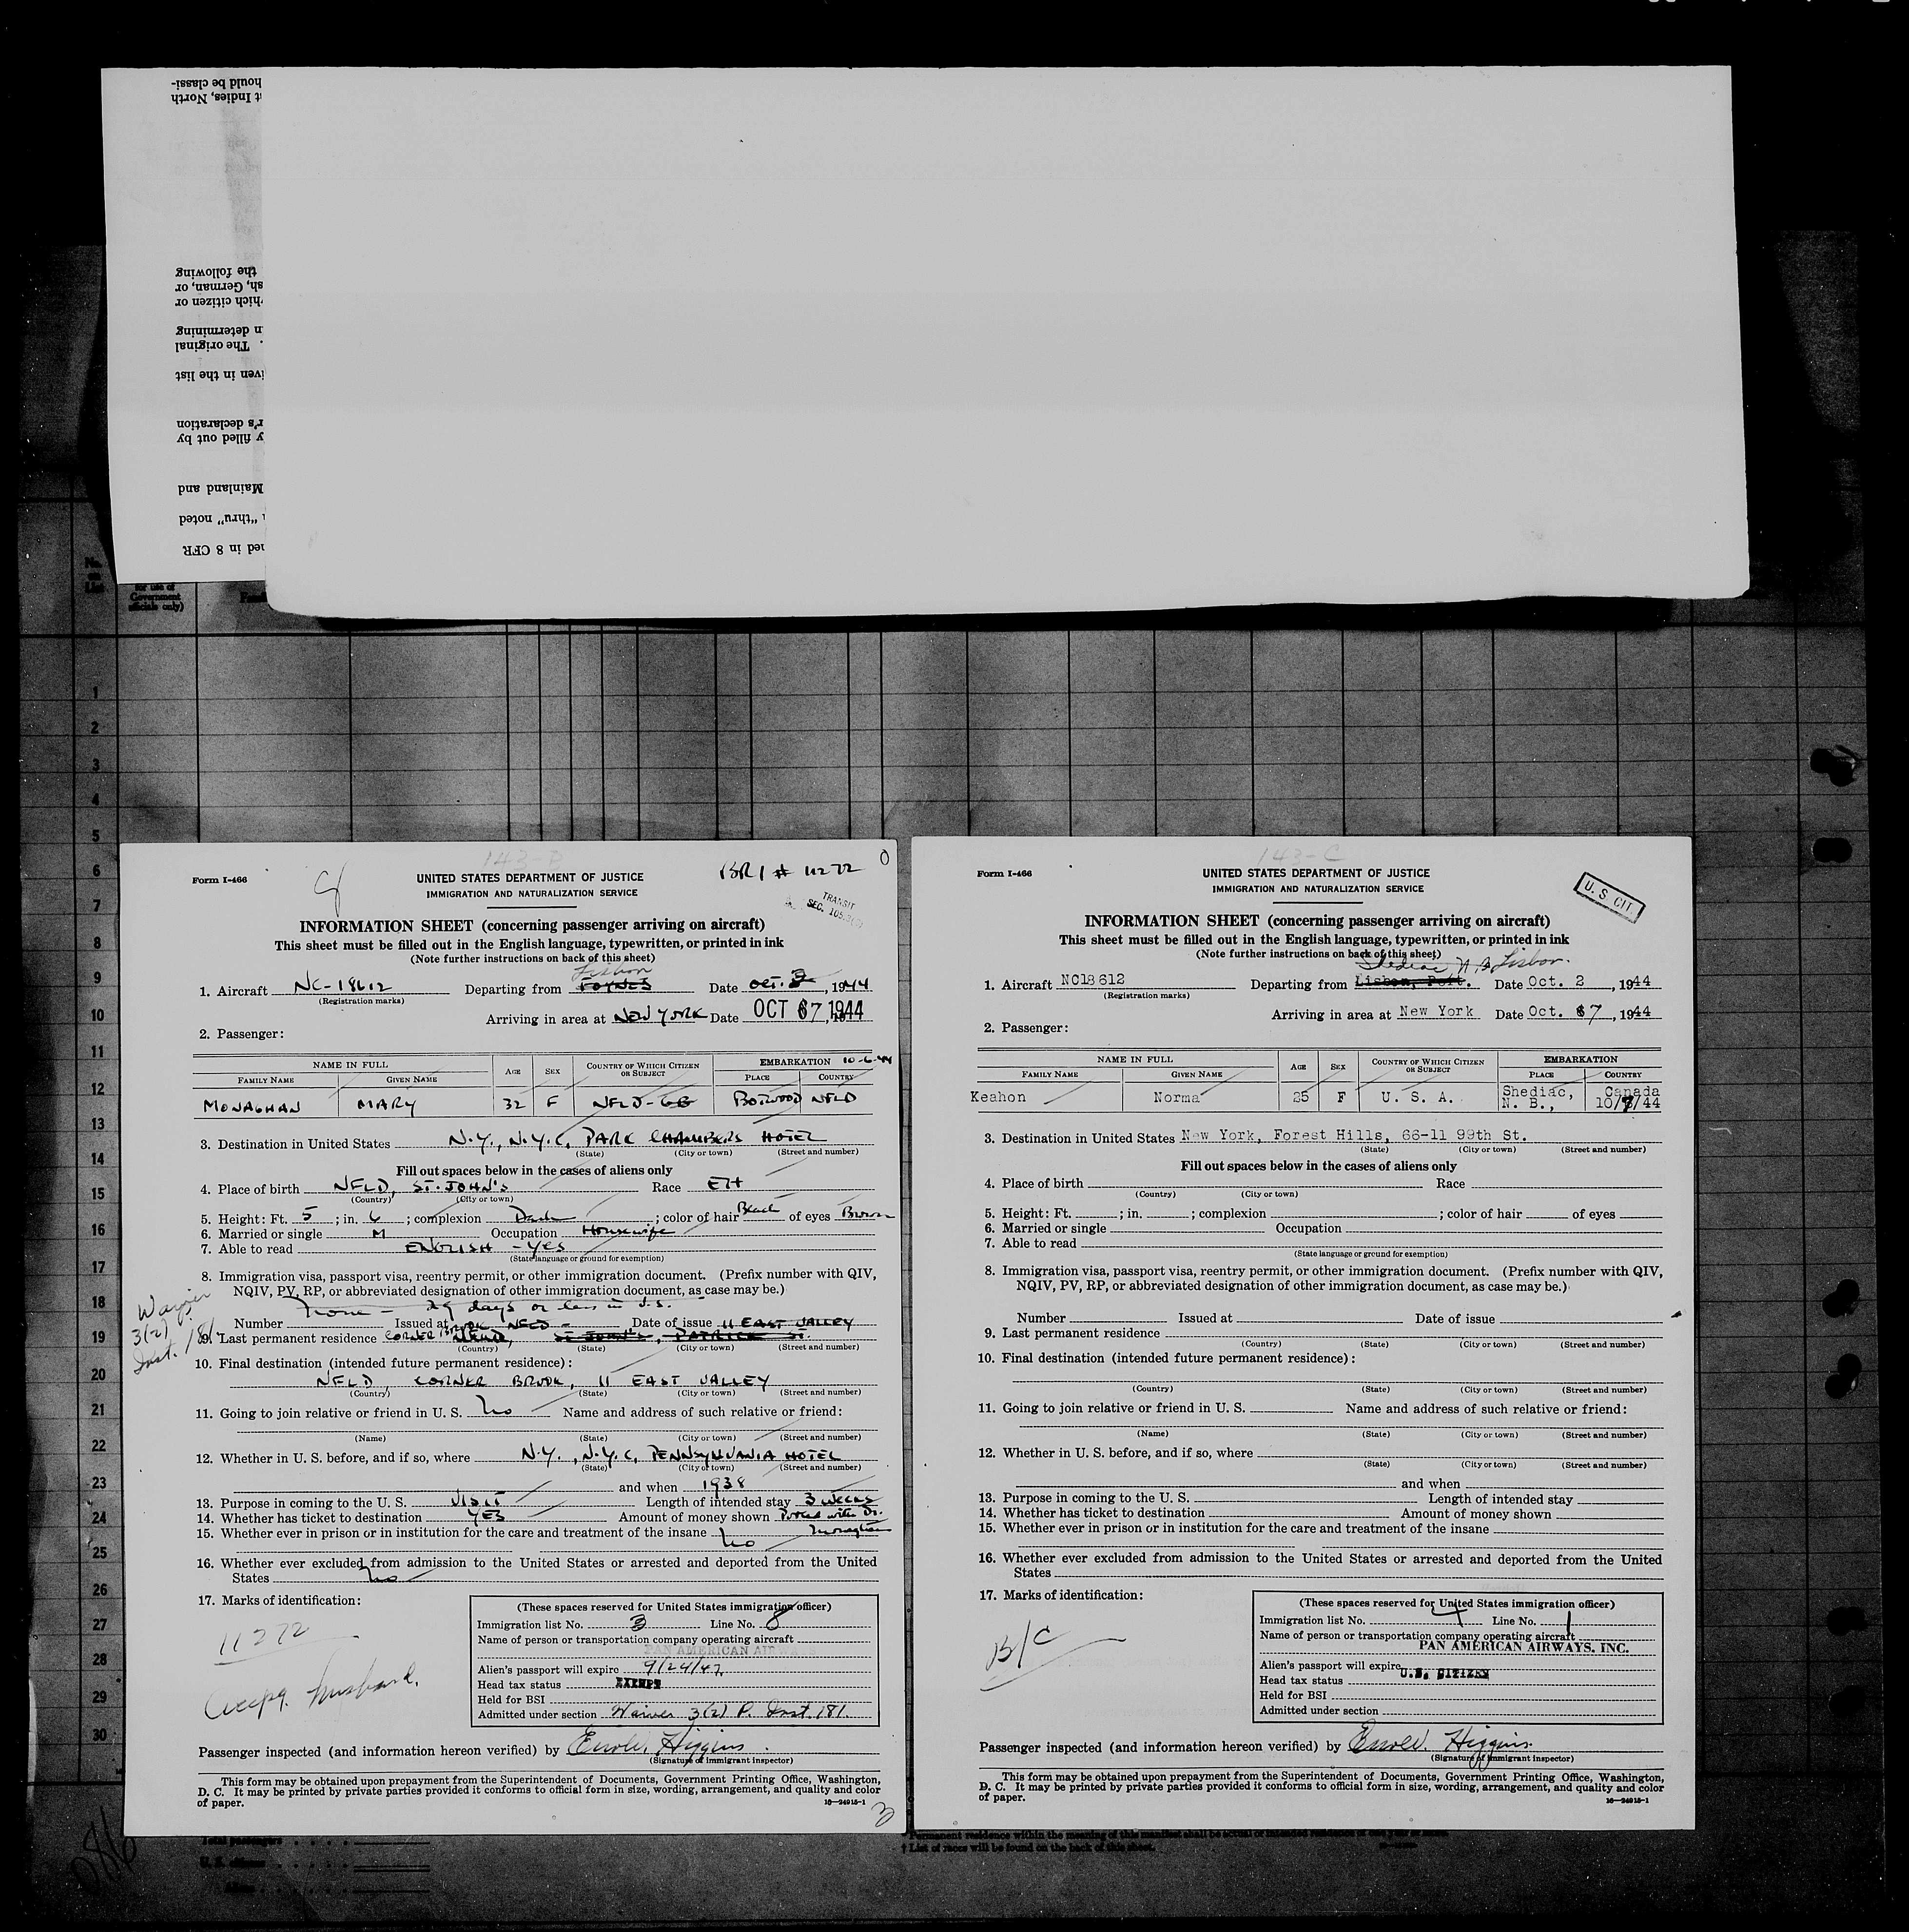 hould be classi-
t Indies, North
the following
sh, German, or
hich citizen or
n determining
. The original
iven in the list
r's declaration
y filled out by
Mainland and
"thru" noted
ned in 8 CFR
No.
on
List
for use of
Government
officials only)
1
2
3
4
5
6
7
8
9
10
11
12
13
14
15
16
17
18
19
20
21
22
23
24
25
26
27
28
29
30
143-B
Form I-466
UNITED STATES DEPARTMENT OF JUSTICE
IMMIGRATION AND NATURALIZATION SERVICE
BR1 # 11272
TRANSIT
SEC. 105.3
INFORMATION SHEET (concerning passenger arriving on aircraft)
This sheet must be filled out in the English language, typewritten, or printed in ink
(Note further instructions on back of this sheet)
Lisbon
1. Aircraft NC-18612 Departing from FOYNES Date OCT. 2, 1944
(Registration marks)
Arriving in area at NEW YORK Date OCT 67 1944
2. Passenger:
NAME IN FULL AGE SEX COUNTRY OF WHICH CITIZEN OR SUBJECT EMBARKATION 10-6-44
FAMILY NAME GIVEN NAME PLACE COUNTRY
MONAGHAN MARY 32 F NFLD-GB BOTWOOD NFLD
3. Destination in United States N.Y., N.Y.C, PARK CHAMBERS HOTEL
(State) (City or town) (Street and number)
Fill out spaces below in the cases of aliens only
4. Place of birth NFLD, ST. JOHN'S Race
(Country) (City or town)
5. Height: Ft. 5; in. 6; complexion Dark; color of hair Black of eyes Brown
6. Married or single M Occupation Housewife
7. Able to read ENGLISH - YES
(State language or ground for exemption)
8. Immigration visa, passport visa, reentry permit, or other immigration document. (Prefix number with QIV,
NQIV, PV, RP, or abbreviated designation of other immigration document, as case may be.)
none - 29 days or less in U.S.
Waiver
3(2)
Inst. 181
Number Issued at Date of issue
9. Last permanent residence CORNER BROOK NFLD - 11 EAST VALLEY
NFLD, ST JOHN'S, PATRICK ST.
(Country) (State) (City or town) (Street and number)
10. Final destination (intended future permanent residence):
NFLD, CORNER BROOK, 11 EAST VALLEY
(Country) (State) (City or town) (Street and number)
11. Going to join relative or friend in U. S. No Name and address of such relative or friend:
(Name) (State) (City or town) (Street and number)
12. Whether in U. S. before, and if so, where N.Y., N.Y.C, PENNSYLVANIA HOTEL
(State) (City or town) (Street and number)
and when 1938
13. Purpose in coming to the U. S. VISIT Length of intended stay 3 weeks
14. Whether has ticket to destination YES Amount of money shown Pooled with Dr.
Monaghan
15. Whether ever in prison or in institution for the care and treatment of the insane No
16. Whether ever excluded from admission to the United States or arrested and deported from the United
States No
17. Marks of identification:
11272
Accpg. husband.
(These spaces reserved for United States immigration officer)
Immigration list No. 3 Line No. 8
Name of person or transportation company operating aircraft
PAN AMERICAN AIRWA
Alien's passport will expire 9/24/47
Head tax status EXEMPT
Held for BSI
Admitted under section Waiver 3(2) P. Inst. 181.
Passenger inspected (and information hereon verified) by Higgins
(Signature of immigrant inspector)
This form may be obtained upon prepayment from the Superintendent of Documents, Government Printing Office, Washington,
D. C. It may be printed by private parties provided it conforms to official form in size, wording, arrangement, and quality and color
of paper.
16—24915-1
3
143-C
Form I-466
UNITED STATES DEPARTMENT OF JUSTICE
IMMIGRATION AND NATURALIZATION SERVICE
U. S. CIT.
INFORMATION SHEET (concerning passenger arriving on aircraft)
This sheet must be filled out in the English language, typewritten, or printed in ink
(Note further instructions on back of this sheet)
Shediac N. B. Lisbon.
1. Aircraft NC18612 Departing from Lisbon, Port. Date Oct. 2, 1944
(Registration marks)
Arriving in area at New York Date Oct. 67, 1944
2. Passenger:
NAME IN FULL AGE SEX COUNTRY OF WHICH CITIZEN OR SUBJECT EMBARKATION
FAMILY NAME GIVEN NAME PLACE COUNTRY
Keahon Norma 25 F U. S. A. Shediac, N. B., Canada 10/7/44
3. Destination in United States New York, Forest Hills, 66-11 99th St.
(State) (City or town) (Street and number)
Fill out spaces below in the cases of aliens only
4. Place of birth Race
(Country) (City or town)
5. Height: Ft. ; in. ; complexion ; color of hair of eyes
6. Married or single Occupation
7. Able to read
(State language or ground for exemption)
8. Immigration visa, passport visa, reentry permit, or other immigration document. (Prefix number with QIV,
NQIV, PV, RP, or abbreviated designation of other immigration document, as case may be.)
Number Issued at Date of issue
9. Last permanent residence
(Country) (State) (City or town) (Street and number)
10. Final destination (intended future permanent residence):
(Country) (State) (City or town) (Street and number)
11. Going to join relative or friend in U. S. Name and address of such relative or friend:
(Name) (State) (City or town) (Street and number)
12. Whether in U. S. before, and if so, where
(State) (City or town) (Street and number)
and when
13. Purpose in coming to the U. S. Length of intended stay
14. Whether has ticket to destination Amount of money shown
15. Whether ever in prison or in institution for the care and treatment of the insane
16. Whether ever excluded from admission to the United States or arrested and deported from the United
States
17. Marks of identification:
B/C
(These spaces reserved for United States immigration officer)
Immigration list No. 4 Line No. 1
Name of person or transportation company operating aircraft
PAN AMERICAN AIRWAYS, INC.
Alien's passport will expire
U.S. CITIZEN
Head tax status
Held for BSI
Admitted under section
Passenger inspected (and information hereon verified) by Higgins
(Signature of immigrant inspector)
This form may be obtained upon prepayment from the Superintendent of Documents, Government Printing Office, Washington,
D. C. It may be printed by private parties provided it conforms to official form in size, wording, arrangement, and quality and color
of paper.
16—24915-1
Total passengers
U. S. citizens
Aliens
† List of races will be found on the back of this sheet.